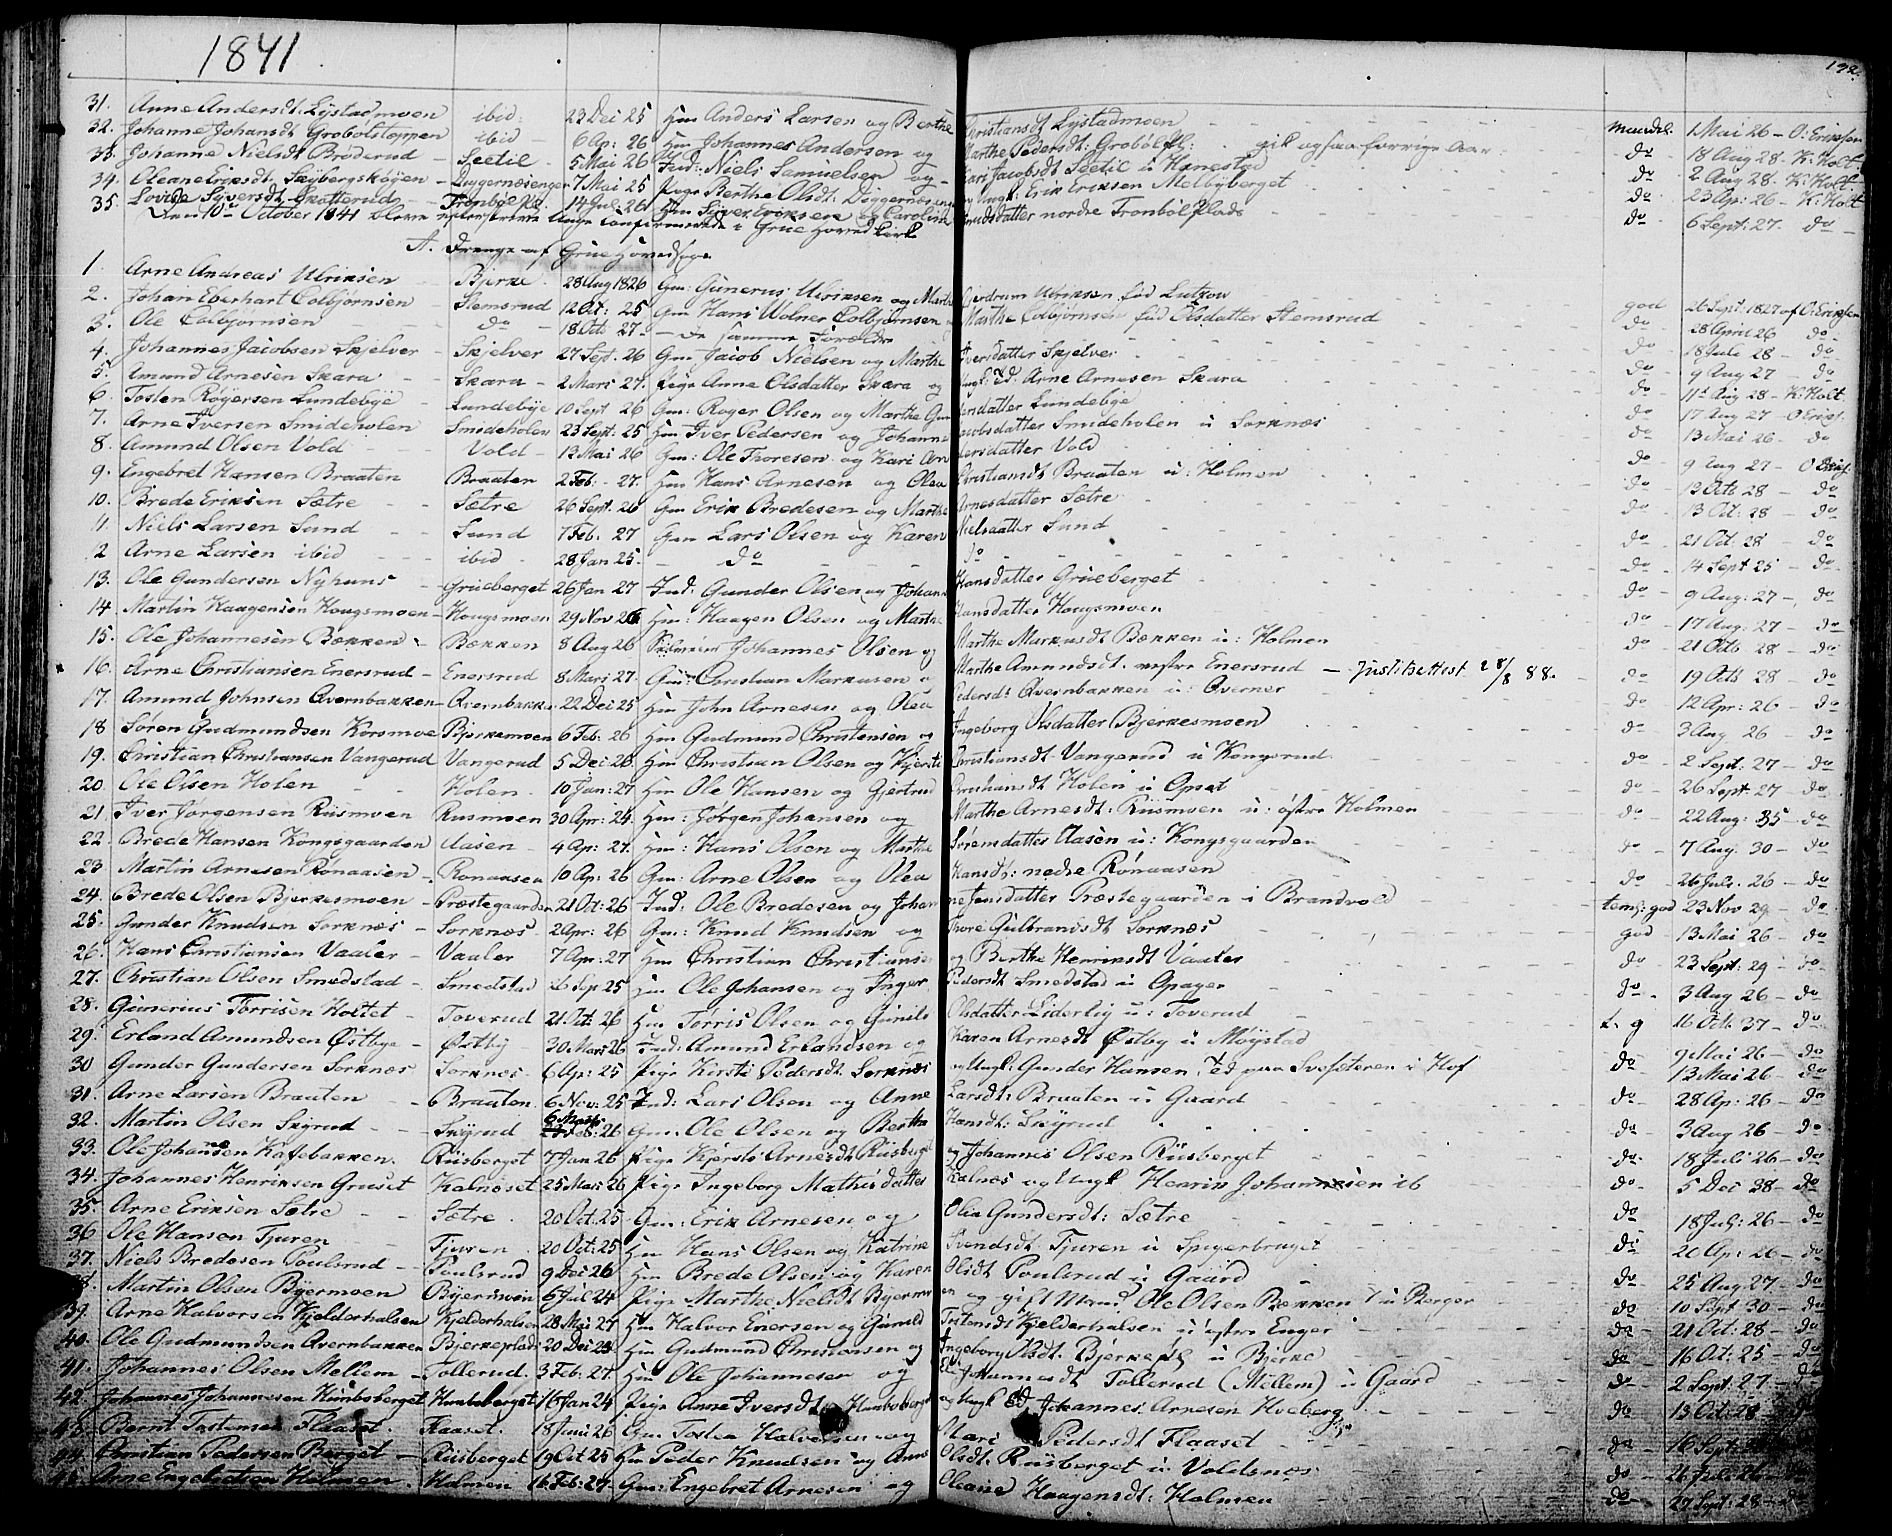 1841
192.
31. Anne Andersdt. Lystadmoen ibid: 23 Dei 25 Hm Anders Larsen og Berthe Christiansdt Lystadmoen maadel. 1 Mai 26 - O: Eriksen
32. Johanne Johansdt Grobølstoppen ibid 6 Ap: 26 Hm Johannes Andersen og Marthe Pedersdt: Grobølpl: gik ogsaa forrige Aar do 18 Aug 28 - K: Holt
33. Johanne Nielsdt Brøderud - Seetil - 5 Mai 26 Ind: Niels Samuelsen og Kari Jacobsdt Seetil u Hanestad do 2 Aug 28 - K: Holt
34. Oleane Eriksdt. Skybergskogen - Diggernæsenget 7 Mai 25 Pige Berthe Olsdt: Diggernæsenget og Ungk: Erik Eriksen Melbyberget do 23 Ap: 26 - K: Holt
35. Lovise Syversdt Skøtterud - Frombølpl. - 14 Jul: 26 Hm Syver Eriksen og Caroline Knudsdatter nordre Frombølplads do 6 Sept: 27. do
Den 10de October 1841 bleve nedenstaaende Unge confirmerede i Grue Hovedkirke
A. Drenge af Grue Hovedsogn
1. Arne Andreas Ulriksen Bjerke. 28 Aug 1826 Gm: Gunerus Ulriksen og Marthe Gjerdrum Ulriksen fød Lutzow god 26 Sept: 1827 af O: Eriksen
2. Johan Eberhart Colbjørnsen Stemsrud 12 Oct: 25 Gm Hans Wolner Colbjørnsen Marthe Colbjørnsen fød Olsdatter Stemsrud do 28 April 26 do
3. Ole Colbjørnsen do 18 Oct 27 - De samme Forældre do 18 Jule 28 - do
4. Johannes Jacobsen Skjelver - Skjelver - 27 Sept. 26 Gm Jacob Nielsen og Marthe Iversdatter Skjelver do 9 Aug 27 - do
5. Amund Arnesen Skara - Skara - 2 Mars 27. Pige Anne Olsdatter Skara og Ungk: Ed: Arne Arnesen Skara do 11te Aug 28 - K: Holt
6. Tosten Røyersen Lundebye - Lundebye 10 Sept 26 Gm: Roger Olsen og Marthe Gunersdatter Lundebye do 17 Aug 27 - O Eriks.
7. Arne Iversen Smideholen Smideholen 23 Sept. 25 Hm Iver Pedersen og Johanne Jacobsdatter Smideholen u Sorknæs do 13 Mai 26 - do
8. Amund Olsen Vold - Vold - 13 Mai 26 Gm: Ole Thoresen og Kari Arnersdatter Vold do 9 Aug 27 - O Eriks.
9. Engebret Hansen Braaten Braaten 2 Feb: - 27. Hm Hans Arnesen og Olea Christiansdt Braaten u: Holmen do 13 Octo 28 - do
10. Brede Eriksen Sætre - Sætre 26 Sept. 26 Gm Erik Bredesen og Marthe Arnesdatter Sætre do 13 Oct: 28 - do
11. Niels Larsen Sund - Sund 7 Feb: 27 Gm Lars Olsen og Karen Nielsdatter Sund do 21 Oct 28 - do
2 Arne Larsen ibid - ibid 28 Jan 25. - do - do do 14 Sept 25 - do
13. Ole Gundersen Nyhuus - Grueberget 26 Jan 27 Ind: Gunder Olsen og Johanne Hansdatter Grueberget do 9 Aug: 27 - do
14. Martin Haagensen Hougsmoen - Hougsmoen 29 Nov 26 Hm: Haagen Olsen og Marthe Hansdatter Hougsmoen do 17 Aug: 27 - do
15. Ole Johannesen Bækken - Bækken 8 Aug 26 Johannes Olsen og Marthe Markusdt Bækken u: Holmen do 21 Octo 28 - do
16. Arne Christiansen Enersrud - Enersrud 8 Mars 27. Gm: Christian Markusen og Marthe Amundsdt. vestre Enersrud - Justitsattest 28/8 88. do 19 Octo 28 - do
17. Amund Johnsen Qvernbakken - Qvernbakke 22 Dei 25 Hm John Arnesen og Olea Pedersdt Qvernbakken u: Qverner do 12 Ap: 26 - do
18 Søren Gudmundsen Korsmoe Bjerkemoen 6 Feb: 26 Hm Gudmund Christensen og Ingeborg Olsdatter Bjerkesmoen do 3 Aug 26 - do
19. Christian Christiansen Vangerud Vangerud 5 Dei 26 Hm Christian Olsen og Kjersti Christiansdt Vangerud u Kongsrud do 2 Sept: 27 - do
20. Ole Olsen Holen - Holen. - 10 Jan: 27 Hm Ole Hansen og Gjertrud Holen u Opsat do 26 Sept: 27 - do
21 Iver Jørgensen Riismoen Riismoen 30 Apr: 24. Hm: Jørgen Johansen og Marthe Arnesdt: Riismoen u: østre Holmen do 22 Aug: 35 - do
22 Brede Hansen Kongsgaarden Aasen - 4 Ap: 27. Hm: Hans Olsen og Marthe Sørensdatter Aasen u: Kongsgaarden do 7 Aug. 30 - do
23 Martin Arnesen Rønaasen - Rønaasen 10 Ap: 26 Gm: Arne Olsen og Olea Hansdt: nedre Rønaasen do 26 Jul: 26 - do
24. Brede Olsen Bjerkesmoen - Præstegaarden 21 Oct: 26 Ind: Ole Bredesen og Johanne Jensdatter Præstegaarden i Brandvold tem: god 23 Nov 29 - do
25. Gunder Knudsen Sorknes - Sorknes - 2 Apr: 26 Gm: Knud Knudsen og Thore Gulbrandsdt Sorknæs god - 13 Mai 26 - do
26. Hans Christiansen Vaaler - Vaaler 7 Ap: 27 Hm Christian Christians: og Berthe Henriksdt Vaaler do 23 Sept: 29 - do
27. Christian Olsen Smedstad - Smedstad 26 Sep 25 Hm Ole Johansen og Inger Pedersdt Smedstad u Opager do. 3 Aug 26 - do
28. Gunerius Torrisen Holtet - Toverud 21 Oct: 26 Hm Torris Olsen og Gunild Olsdatter Liderlig u: Toverud t. g 16 Octo 37 - do
29. Erland Amundsen Østbye - Østby - 30 Mars 26 Ind: Amund Erlandsen og Karen Arnesdt Østby u Møystad do 9 Mai 26 - do
30 Gunder Gundersen Sorknæs Sorknæs - 6 Ap: 25 Pige Kirsti Pedersdt Sorknæs og Ungk: Gunder Hansen, Ed paa i Hof do 13 Mai 26 - do
31. Arne Larsen Braaten - Braaten. 6 Nov: 25 Ind: Lars Olsen og Anne Larsdt: Braaten u Gaard do 28 Ap: 26 - do
32. Martin Olsen Skyrud - Skyrud 6 Mars 26 Gm. Ole Olsen og Berthe Hansdt: Skyrud do 3 Aug 26 - do
33. Ole Johansen Kaflebakken. Riisberget 7 Jan 26 Pige Kjersti Arnesdt Riisberget og Johannes Olsen Riisberget do 18 Juli 26 - do
34. Johannes Henriksen Gruset Kalneset 25 Mars 26 Pige Ingeborg Mathisdatter Kalnes og Ungk Henrik Johannesen ib do 5 Dei 38 - do
35. Arne Eriksen Sætre - Sætre. 20 Oct: 25 Gm: Erik Arnesen og Olea Gundersdt: Sætre do 18 Jul: 26 - do
36 Ole Hansen Tjuren - Tjuren. 20 Oct: 25 Hm Hans Olsen og Katrine Svendsdt: Tjuren u Spigerbruget do 20 Ap: 26 - do
37. Niels Bredesen Poulsrud - Poulsrud 9 Dei 26 Hm Brede Olsen og Karen Olsdt Poulsrud u Gaard do 25 Aug 27 - do
38. Martin Olsen Byermoen Byermoen 6 Jul 24 Pige Marthe Nielsdt Byermoen og gift Mand Ole Olsen Bækken u Berger do 10 Sept 30 - do
39. Arne Halvorsen Kjelderhalsen Kjelderhalsen 28 Mai: 27 Hm Halvor Enersen og Gunild Tostensdt Kjelderhalsen u østre Enger do 21 Oct: 28 - do
40. Ole Gudmundsen Qvernbakken Bjerkeplads 20 Dei 23 Hm Gudmund Christiansen og Ingeborg Olsdt. Bjerkepl u Bjerke do 16 Oct: 25 - do
41. Johannes Olsen Mellem - Tollerud. 3 Feb: 27. Hm Ole Johannesen og Johannesdt Tollerud (Mellem) u Gaard do 2 Sept: 27 - do
42. Johannes Johannesen Humbsberget Humbsberget 16 Jan 24 Pige Anne Iversdt Humbsberget og Ungk Ed Johannes Arnesen Hveberg do 13 Oct: 28 - do
43. Bernt Tostensen Flaaset. Flaaset. 18 Juni 26 Gm Tosten Halvorsen og Mari Pedersdt Flaaset do 16 Sept:
44. Christian Pedersen Berget - Riisberget 19 Oct 25 Hm Peder Knudsen og Anne Olsdt. Riisberget u Voldsnæs do 26 Juli 26 -
45. Arne Engebretsen Holmen. Holmen 16 Feb: 27. Gm: Engebret Arnesen og Oleane Haagensdt: Holmen do 27 Sept: 28 - do